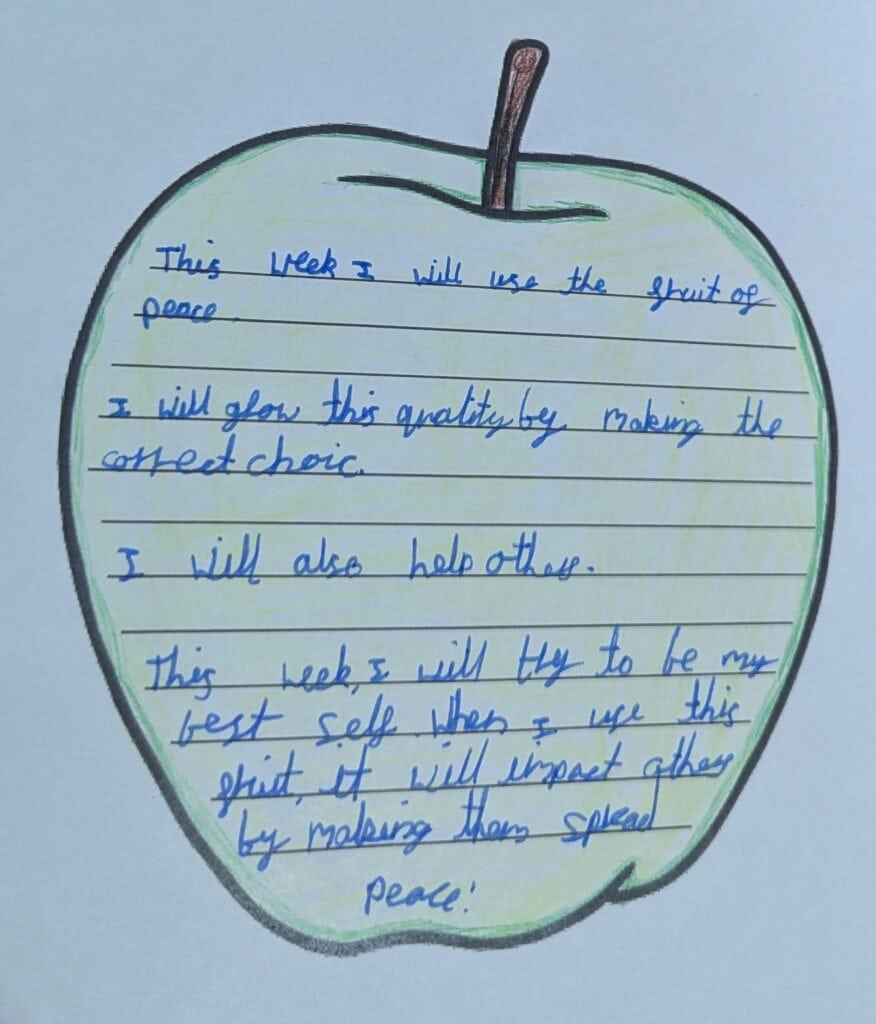 This week I will use the fruit of
peace.
I will grow this quality by making the
correct choic.
I will also help others.
This week, I will try to be my
best self. When I use this
fruit, it will impact others
by making them spread
peace!